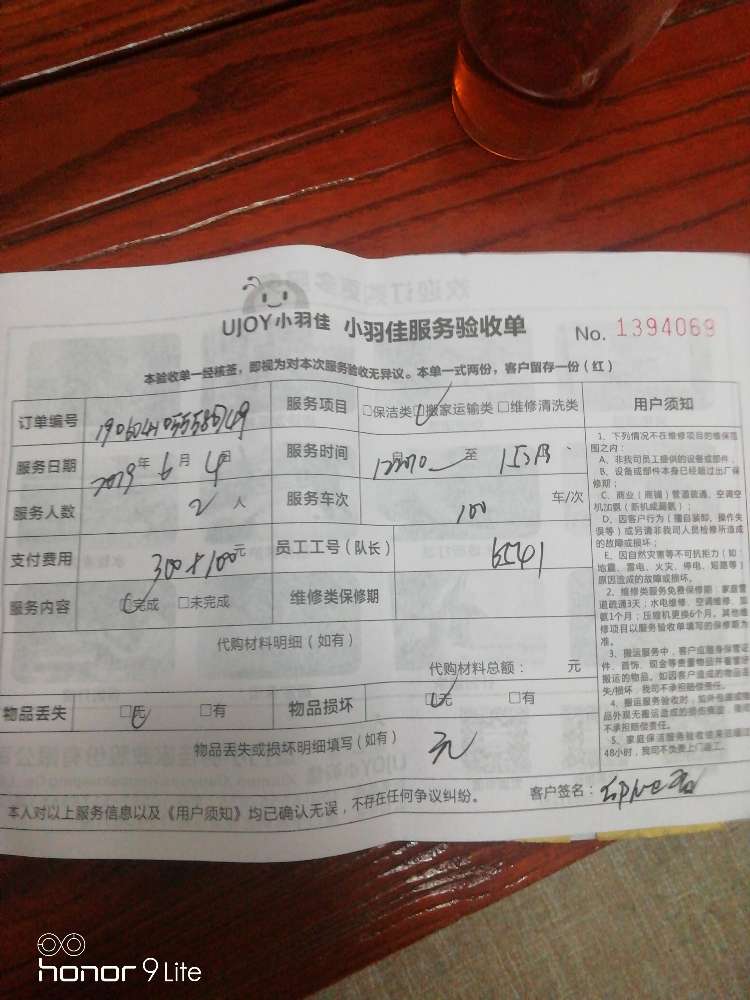 UJOY小羽佳 小羽佳服务验收单 No. 1394069
本验收单一经核签，即视为对本次服务验收无异议。本单一式两份，客户留存一份（红）
订单编号 服务项目 □保洁类 □搬家运输类 □维修清洗类 用户须知
服务日期 2019年 6月 4日 服务时间 至
服务人数 2人 服务车次 100 车/次
支付费用 300+100元 员工工号（队长） 6541
服务内容 □完成 □未完成 维修类保修期
代购材料明细（如有）
代购材料总额： 元
物品丢失 □无 □有 物品损坏 □无 □有
物品丢失或损坏明细填写（如有） 无
本人对以上服务信息以及《用户须知》均已确认无误，不存在任何争议纠纷。 客户签名：
1、下列情况不在维修项目的维保范
围之内：
A、非我司员工提供的设备或部件；
B、设备或部件本身已经超过出厂保
修期；
C、商业（商铺）管道疏通、空调空
机加氨（新机或漏氨）；
D、因客户行为（擅自装卸、操作失
误等）或另请非我司人员检修所造成
的故障或损坏；
E、因自然灾害等不可抗拒力（如：
地震、雷电、火灾、停电、短路等）
原因造成的故障或损坏。
2、维修类服务免费保修期：家庭管
道疏通3天；水电维修、空调维修、加
氨1个月；压缩机更换6个月。其他维
修项目以服务验收单填写的保修期为
准。
3、搬运服务中，客户应随身保管证
件、首饰、现金等贵重物品并看管好
搬运的物品。如因客户造成的物品丢
失/损坏，我司不承担赔偿责任。
4、搬运服务验收时，
品外观无搬运造成的
不承担赔偿责任。
5、家庭保洁服务验收结束后
48小时，我司不负责上门返工。
honor 9 Lite